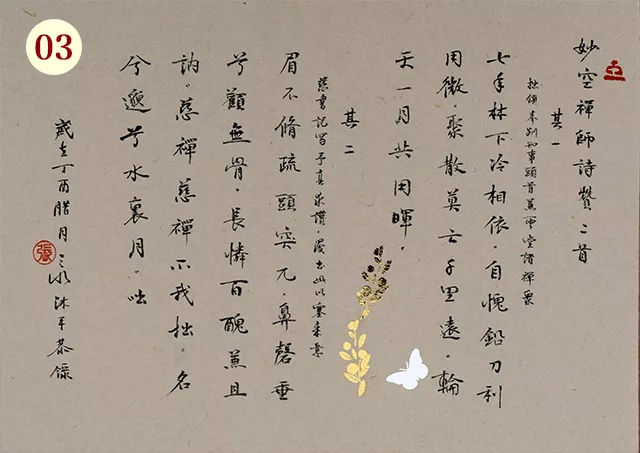 03
妙空禪師詩贊二首
其一
拙領本別知事頭首萬年堂諸禪眾
七年林下冷相依。自愧鉛刀利
用微。聚散莫言千里遠。輪
天一月共用暉。
其二
慈書記寫予真求讚,漫出此以塞來意
眉不脩疏。頭突兀。鼻磬垂
兮顴無骨。長憐百醜兼且
訥。慈禪慈禪不我拙。名
兮邈兮水裏月。咄
歲在丁酉腊月 沐手恭錄
張